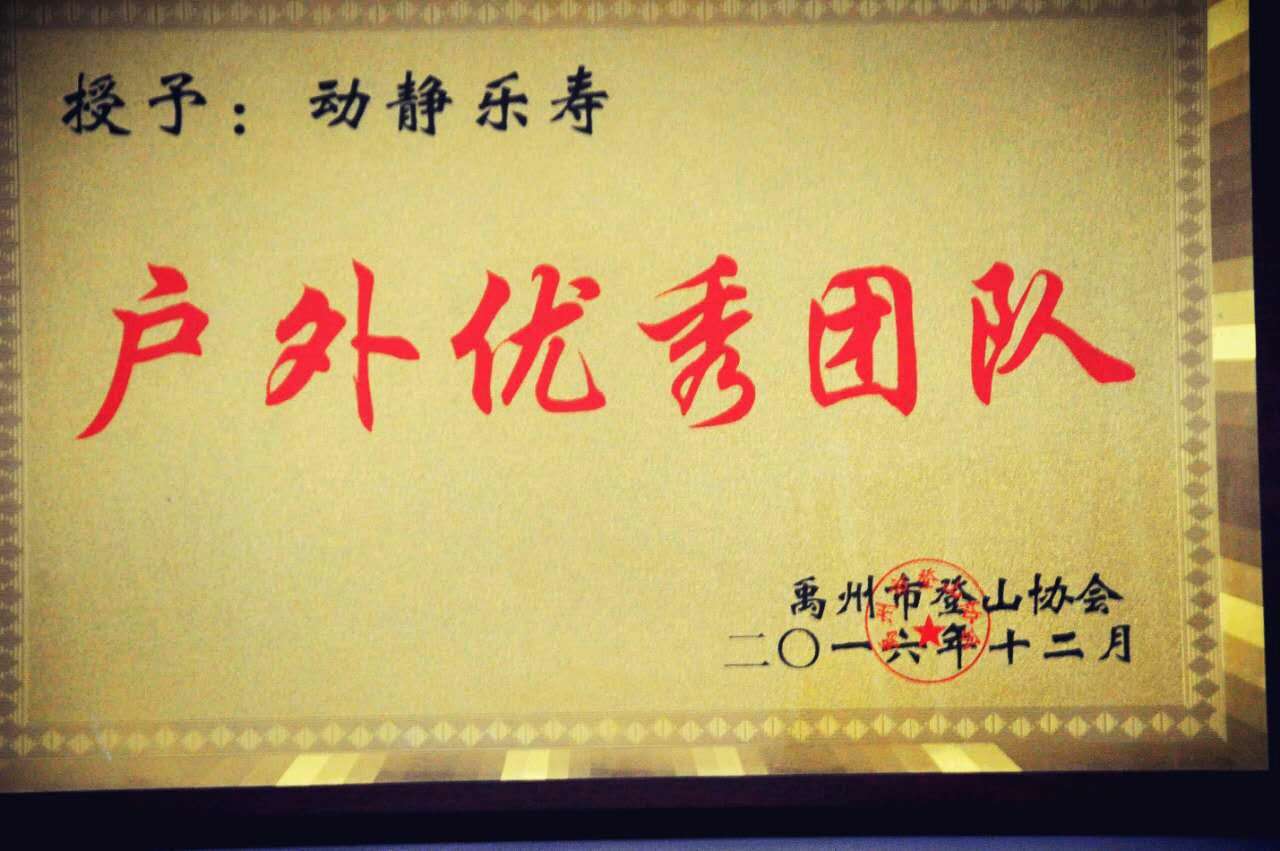 授予：动静乐寿
户外优秀团队
禹州市登山协会
二〇一六年十二月